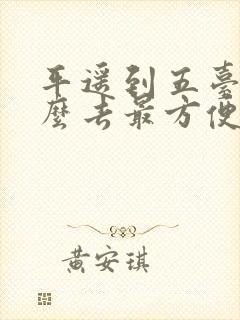 平遥到五臺
麽去最方便
黄安琪